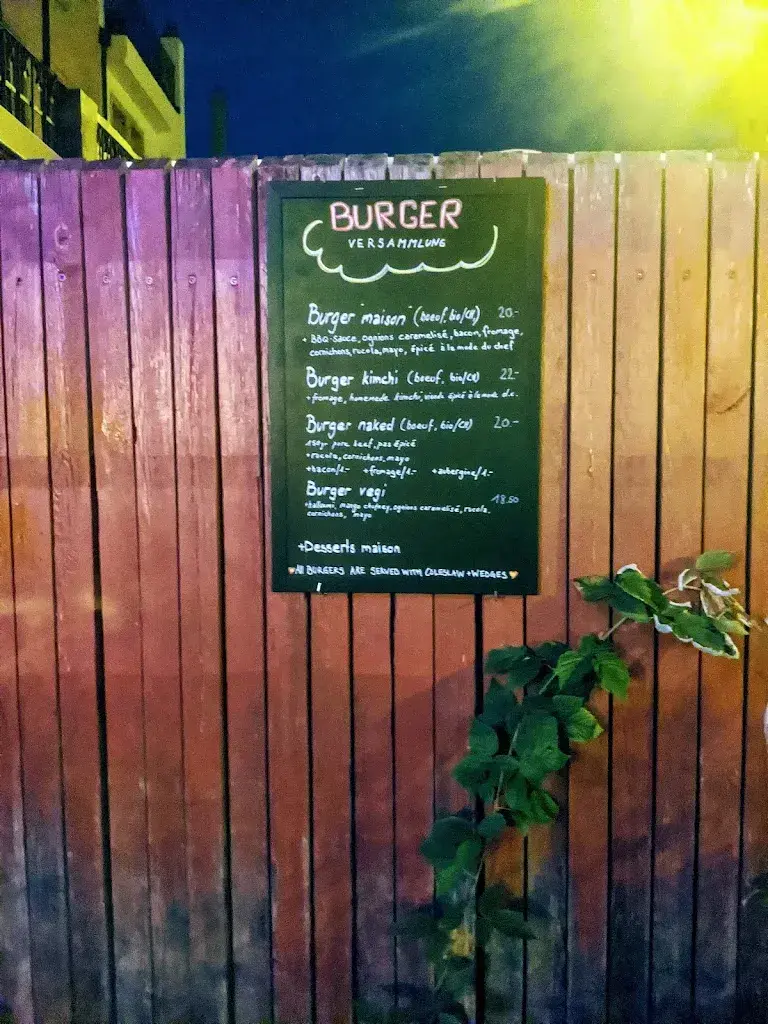 BURGER
VERSAMMLUNG
Burger "maison" (boeuf, bio/CH) 20.-
+ BBQ-sauce, ognions caramelisé, bacon, fromage,
cornichons, rucola, mayo, épicé à la mode du chef
Burger kimchi (boeuf, bio/CH) 22.-
+fromage, homemade kimchi, viande épicé à la mode d.c.
Burger naked (boeuf, bio/CH) 20.-
150gr pure beef, pas épicé
+rucola, cornichons, mayo
+bacon/1.- +fromage/1.- +aubergine/1.-
Burger vegi 18.50
+halloumi, mango chutney, ognions caramelisé, rucola,
cornichons, mayo
+Desserts maison
All BURGERS ARE SERVED WITH COLESLAW + WEDGES